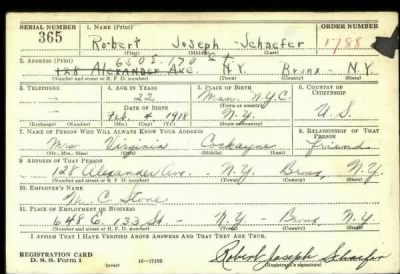 SERIAL NUMBER 1. NAME (Print) ORDER NUMBER
365 Robert Joseph Schaefer 1788
(First) (Middle) (Last)
650 S. 170 St
2. ADDRESS (Print)
128 Alexander Ave. N.Y. Bronx - N.Y.
(Number and street or R. F. D. number) (Town) (County) (State)
3. TELEPHONE 4. AGE IN YEARS 5. PLACE OF BIRTH 6. COUNTRY OF CITIZENSHIP
22 N.Y.C.
DATE OF BIRTH (Town or county)
Feb. 4, 1918 N.Y. U.S.
(Exchange) (Number) (Mo.) (Day) (Yr.) (State or country)
7. NAME OF PERSON WHO WILL ALWAYS KNOW YOUR ADDRESS 8. RELATIONSHIP OF THAT PERSON
Mrs. Virginia Cockayne friend
(Mr., Mrs., Miss) (First) (Middle) (Last)
9. ADDRESS OF THAT PERSON
128 Alexander Ave. - N.Y. Bronx, N.Y.
(Number and street or R. F. D. number) (Town) (County) (State)
10. EMPLOYER'S NAME
C. Stone
11. PLACE OF EMPLOYMENT OR BUSINESS
648 E. 133 St. - N.Y. - Bronx, N.Y.
(Number and street or R. F. D. number) (Town) (County) (State)
I AFFIRM THAT I HAVE VERIFIED ABOVE ANSWERS AND THAT THEY ARE TRUE.
REGISTRATION CARD Robert Joseph Schaefer
D. S. S. FORM 1 (over) 16-17105 (Registrant's signature)